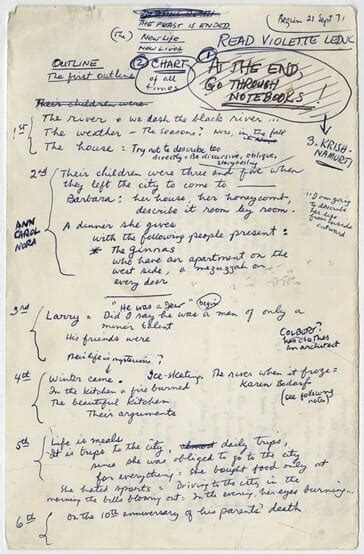 THE FEAST IS ENDED
(The) NEW LIFE
NOW LIVES
Begun 21 Sept 71
READ VIOLETTE LEDUC
OUTLINE
The first outline
② CHART
of all times
① AT THE END,
GO THROUGH
NOTEBOOKS
3. KRISH-
NAMURTI
Their children were
1st
The river = we dash the black river...
The weather - The seasons? Now, in the fall
The house = Try not to describe too
directly - Be discursive, oblique,
storytelling
I am going
to describe
her life
from inside
outward
2nd
Their children were three and five when
they left the city to come to
Barbara: her house, her honeycomb,
describe it room by room.
ANN
CAROL
NORA
A dinner she gives
with the following people present:
* The Ginnas
who have an apartment on the
west side, a mezuzzah on
every door
"He was a Jew" begin
3rd
Larry = Did I say he was a man of only a
minor talent
His friends were
COLBERT?
was clothes
an architect
Their life is mysterious?
4th
Winter came. Ice-skating. The river when it froze =
In the kitchen a fire burned
Karen Bedorf
The beautiful kitchen
(see following
notes)
Their arguments
5th
Life is meals
It is trips to the city, daily trips,
since she was obliged to go to the city
for everything = she bought food only at
She hated sports = Driving to the city in the
morning the bills blowing out = In the evening, her eyes burning...
6th
On the 10th anniversary of his parents' death